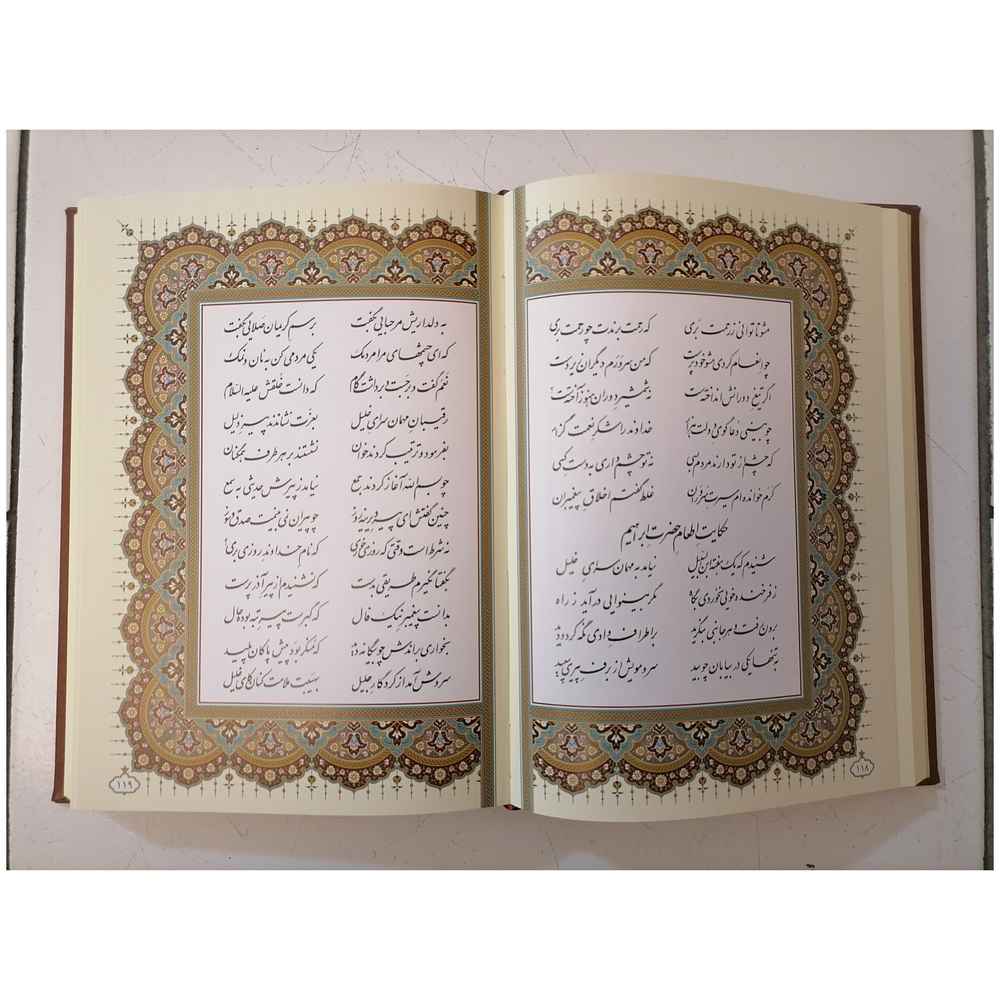 مشو تا توانی ز رحمت بری که رحمت برندت چو رحمت بری
چو انعام کردی مشو خودپرست که من سرورم دیگران زیردست
اگر تیغ دورانش انداختست نه شمشیر دوران هنوز آختست
چو بینی دعاگوی دولت هزار خداوند را شکر نعمت گزار
که چشم از تو دارند مردم بسی نه تو چشم داری به دست کسی
کرم خوانده‌ام سیرت سروران غلط گفتم اخلاق پیغمبران
حکایت اطعام حضرت ابراهیم
شنیدم که یک هفته ابن السبیل نیامد به مهمان سرای خلیل
ز فرخنده خوئی نخوردی بگاه مگر بینوایی درآید ز راه
برون رفت و هر جانبی بنگرید بر اطراف وادی نگه کرد و دید
به تنها یکی در بیابان چو بید سر و مویش از برف پیری سپید
۱۱۸
به دلداریش مرحبایی بگفت برسم کریمان صلایی بگفت
که ای چشمهای مرا مردمک یکی مردمی کن به نان و نمک
نعم گفت و برجست و برداشت گام که دانست خلقش علیه السلام
رقیبان مهمان سرای خلیل بعزت نشاندند پیر ذلیل
بفرمود و ترتیب کردند خوان نشستند بر هر طرف همگنان
چو بسم الله آغاز کردند جمع نیامد ز پیرش حدیثی به سمع
چنین گفتش ای پیر دیرینه روز چو پیران نمی بینمت صدق و سوز
نه شرط است وقتی که روزی خوری که نام خداوند روزی بری
بگفتا نگیرم طریقی بدست که نشنیدم از پیر آذرپرست
بدانست پیغمبر نیک فال که گبرست پیر تبه بوده حال
بخواری براندش چو بیگانه دید که منکر بود پیش پاکان پلید
سروش آمد از کردگار جلیل به هیبت ملامت کنان کای خلیل
۱۱۹